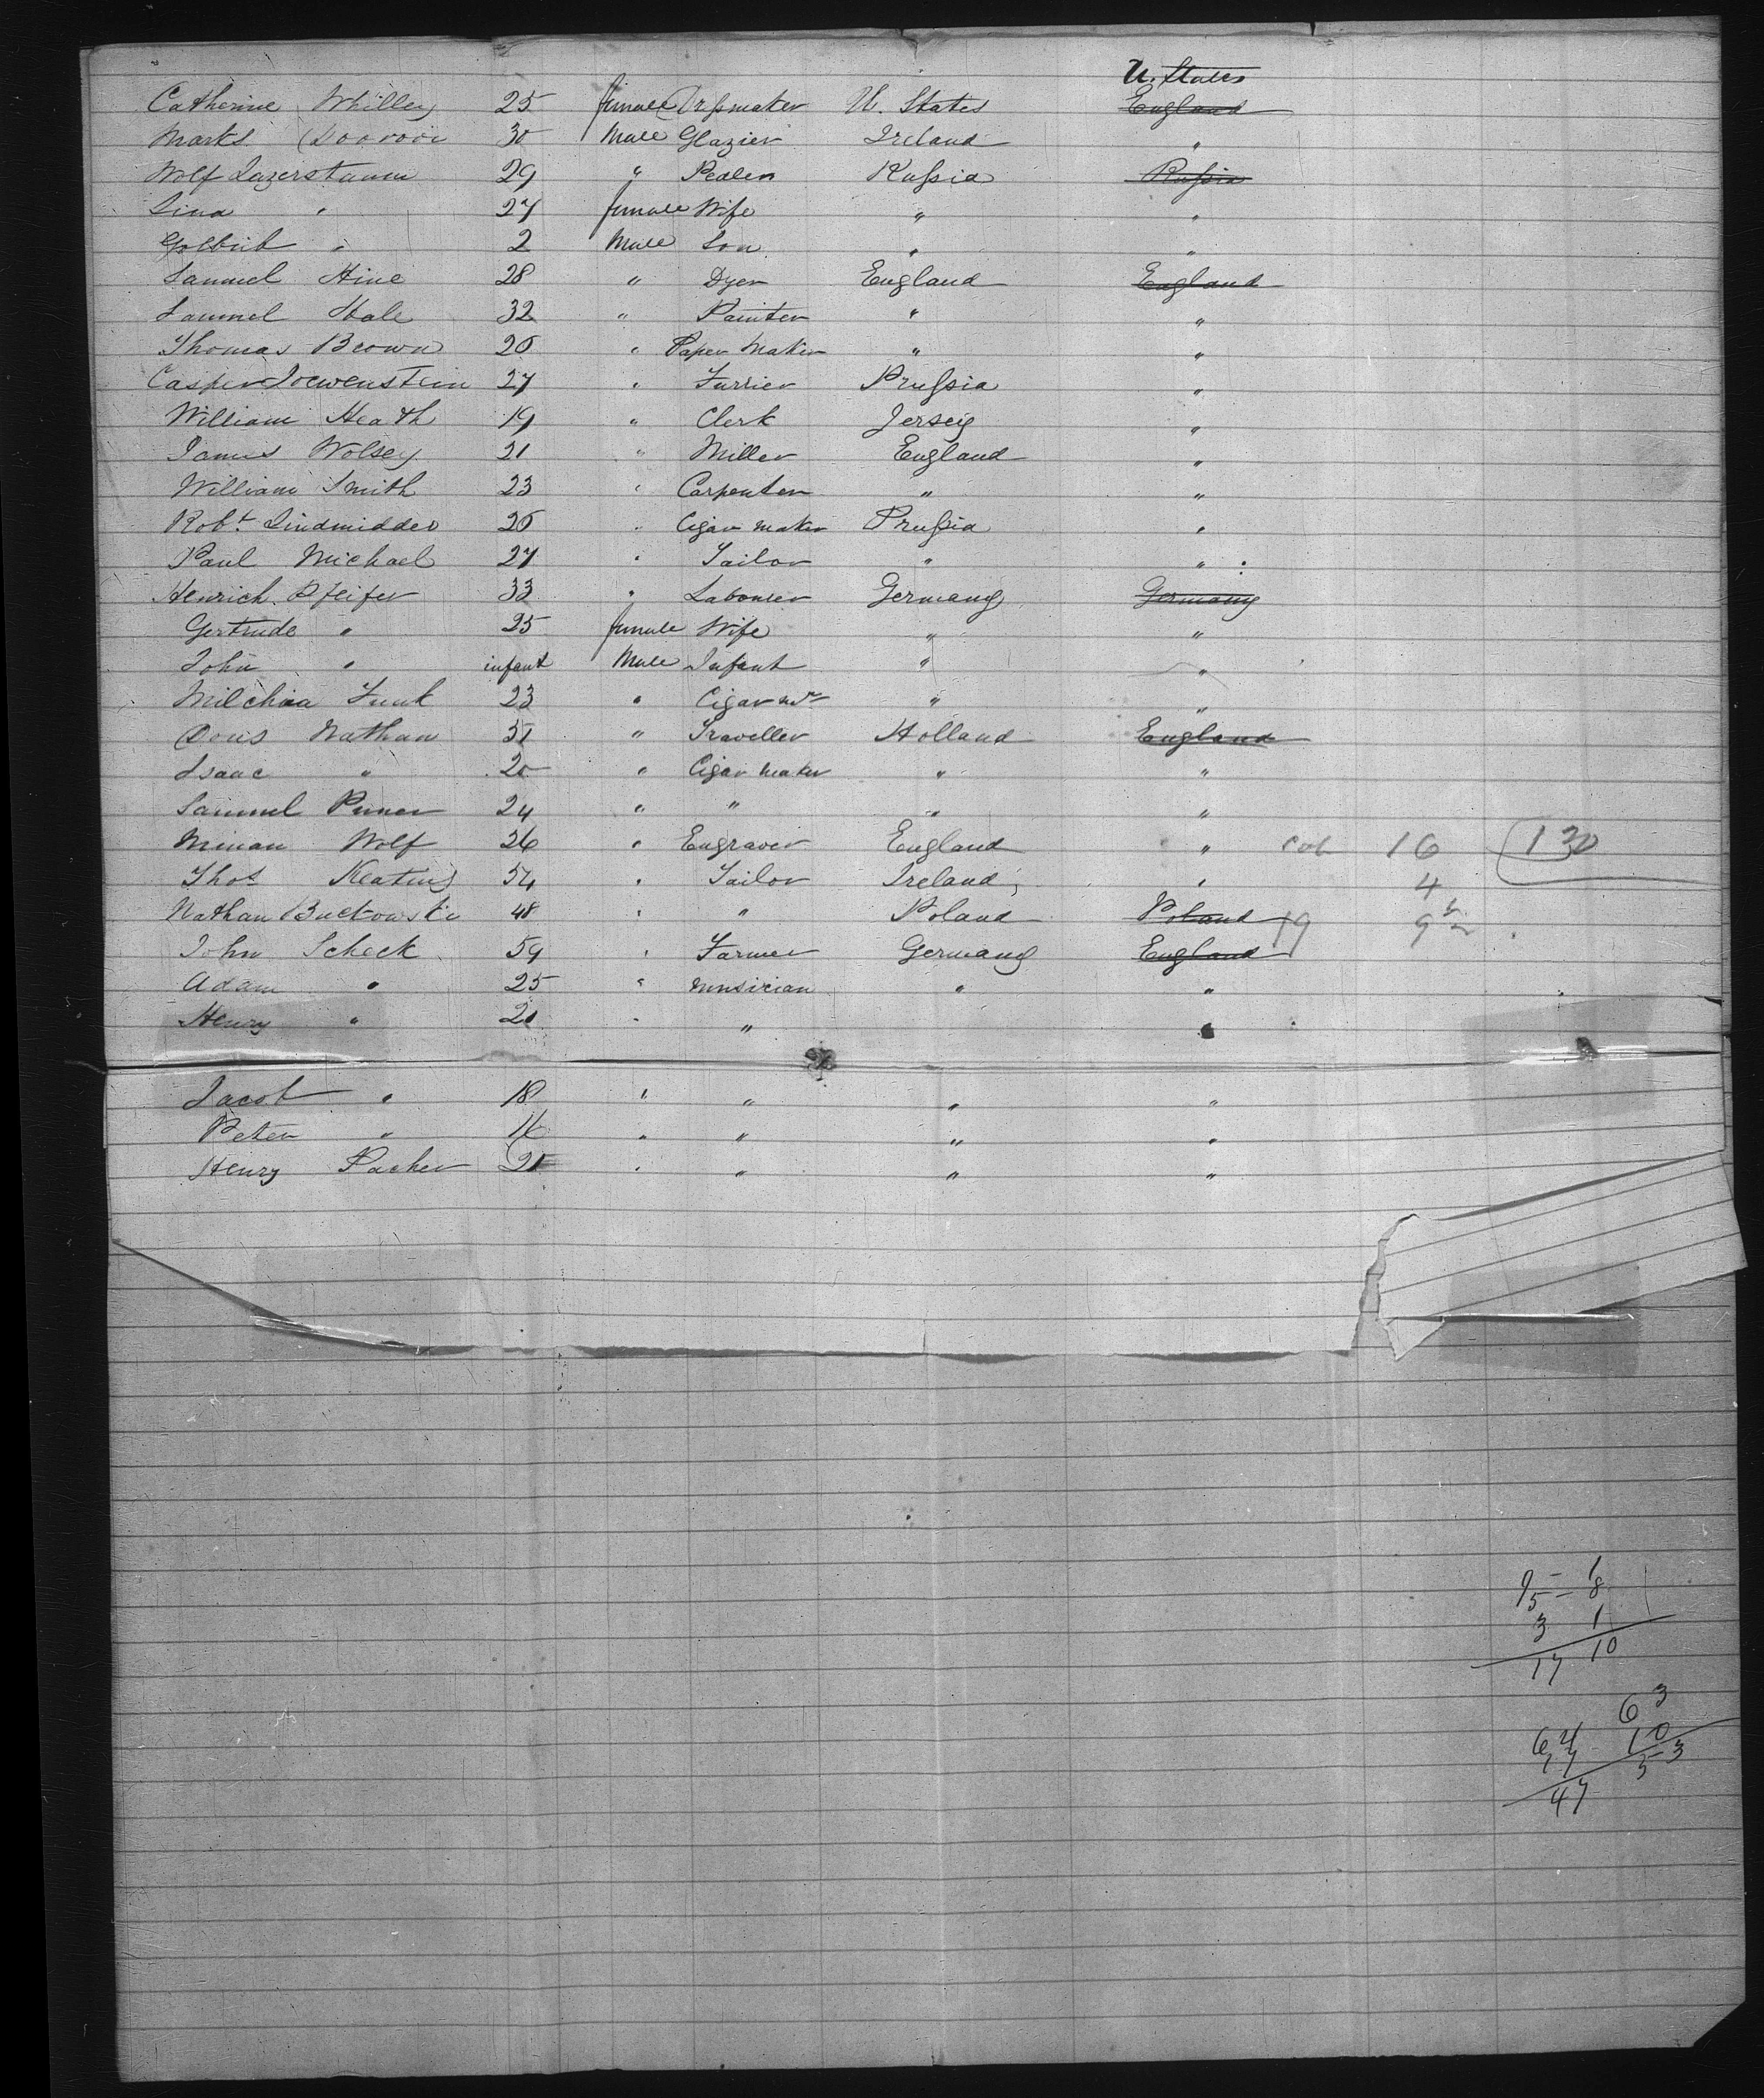 U. States
Catherine Whilley 25 female Dressmaker U. States England
Marks 30 Male Glazier Ireland "
Wolf Lazerstamm 29 " Pedler Russia Russia
Lina " 27 female Wife " "
" 2 Male Son " "
Samuel Hine 28 " Dyer England England
Samuel Hale 32 " Painter " "
Thomas Brown 20 " Paper Maker " "
Casper Loewenstein 27 " Furrier Prussia "
William Heath 19 " Clerk Jersey "
James Wolsey 21 " Miller England "
William Smith 23 " Carpenter " "
Robt. Lindmidder 26 " Cigar maker Prussia "
Paul Michael 27 " Tailor " "
Henrich Pfeifer 33 " Labourer Germany Germany
Gertrude " 25 female Wife " "
John " infant Male Infant " "
Milchia Funk 23 " Cigar mr " "
Doris Nathan 51 " Traveller Holland England
Isaac " 20 " Cigar maker " "
Samuel Pruner 24 " " " "
Wolf 26 " Engraver England " 16 130
Thos Keating 54 " Tailor Ireland " 4
Nathan Buckowski 48 " " Poland Poland 19
John Scheck 59 " Farmer Germany England
Adam " 25 " musician " "
Henry " 20 " " "
Jacob " 18 " " " "
Peter " 16 " " " "
Henry Pacher 21 " " " "
15 – 8
3 1
17 10
63
64 10
17 53
47